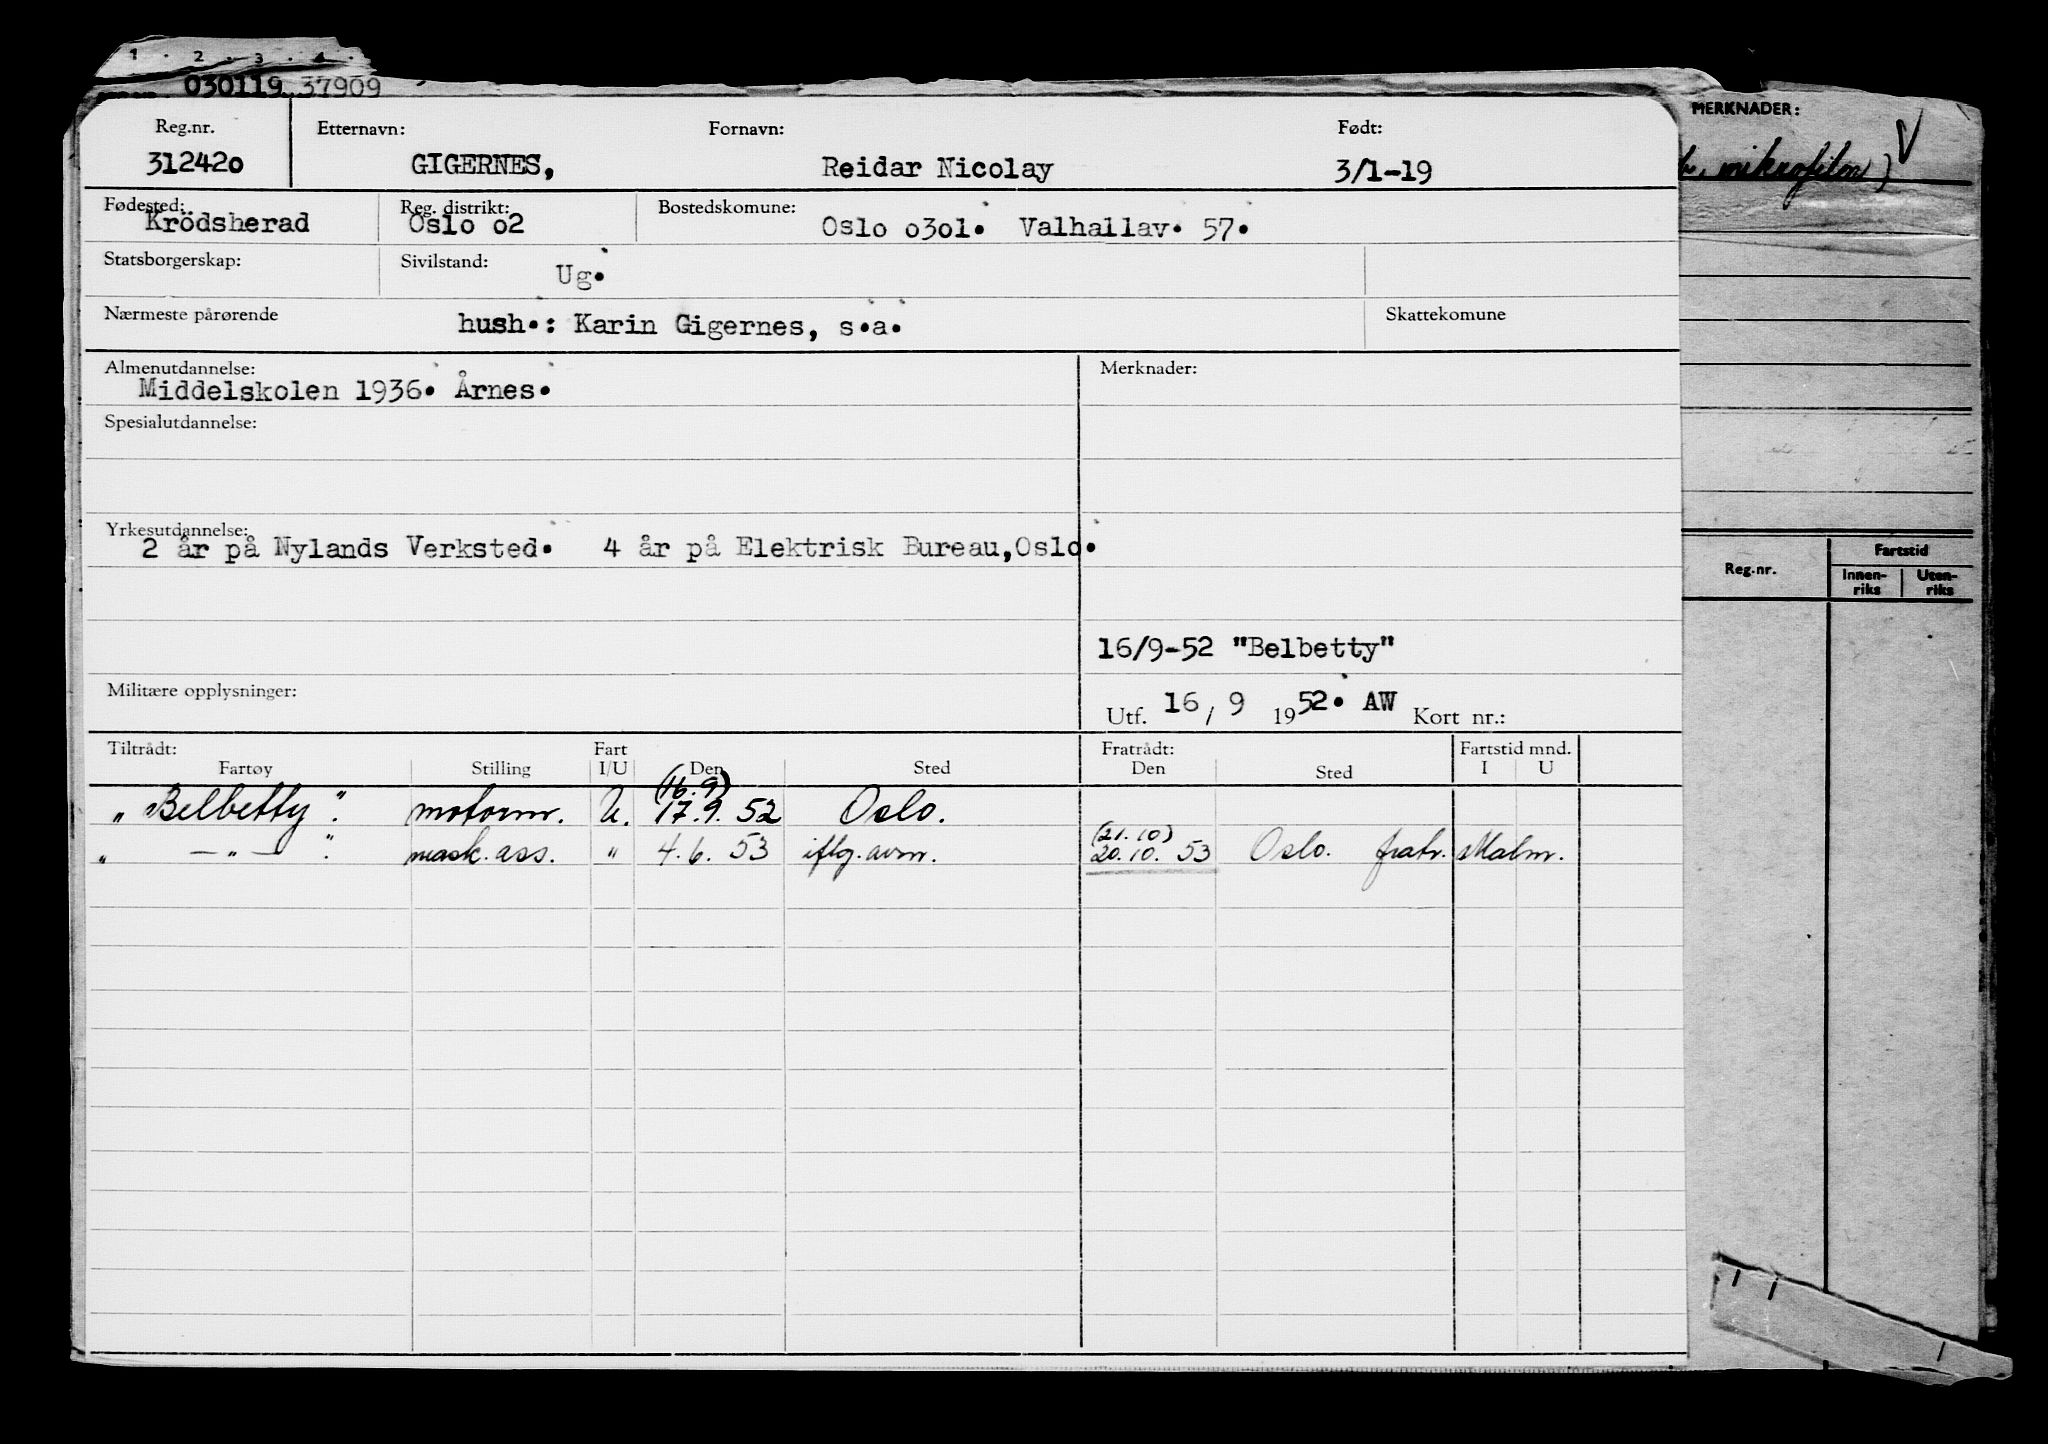 1 . 2 . 3 . 4 .
030119 37909
MERKNADER:
mikrofilm) V
Reg.nr. Etternavn: Fornavn: Født:
312420 GIGERNES, Reidar Nicolay 3/1-19
Fødested: Reg. distrikt: Bostedskomune:
Krödsherad Oslo o2 Oslo o3o1. Valhallav. 57.
Statsborgerskap: Sivilstand: Ug.
Nærmeste pårørende hush.: Karin Gigernes, s.a. Skattekomune
Almenutdannelse: Merknader:
Middelskolen 1936. Årnes.
Spesialutdannelse:
Yrkesutdannelse:
2 år på Nylands Verksted. 4 år på Elektrisk Bureau,Oslo.
Reg.nr. Fartstid
Innen-riks Uten-riks
16/9-52 "Belbetty"
Militære opplysninger:
Utf. 16 / 9 1952. AW Kort nr.:
Tiltrådt: Fart Fratrådt: Fartstid mnd.
Fartøy Stilling I/U Den Sted Den Sted I U
(16.9)
"Belbetty". motorm. U. 17.9. 52 Oslo.
(21.10)
" —"— " mask. ass. " 4.6. 53 iflg. avm. 20.10. 53 Oslo. fratr. Malm.